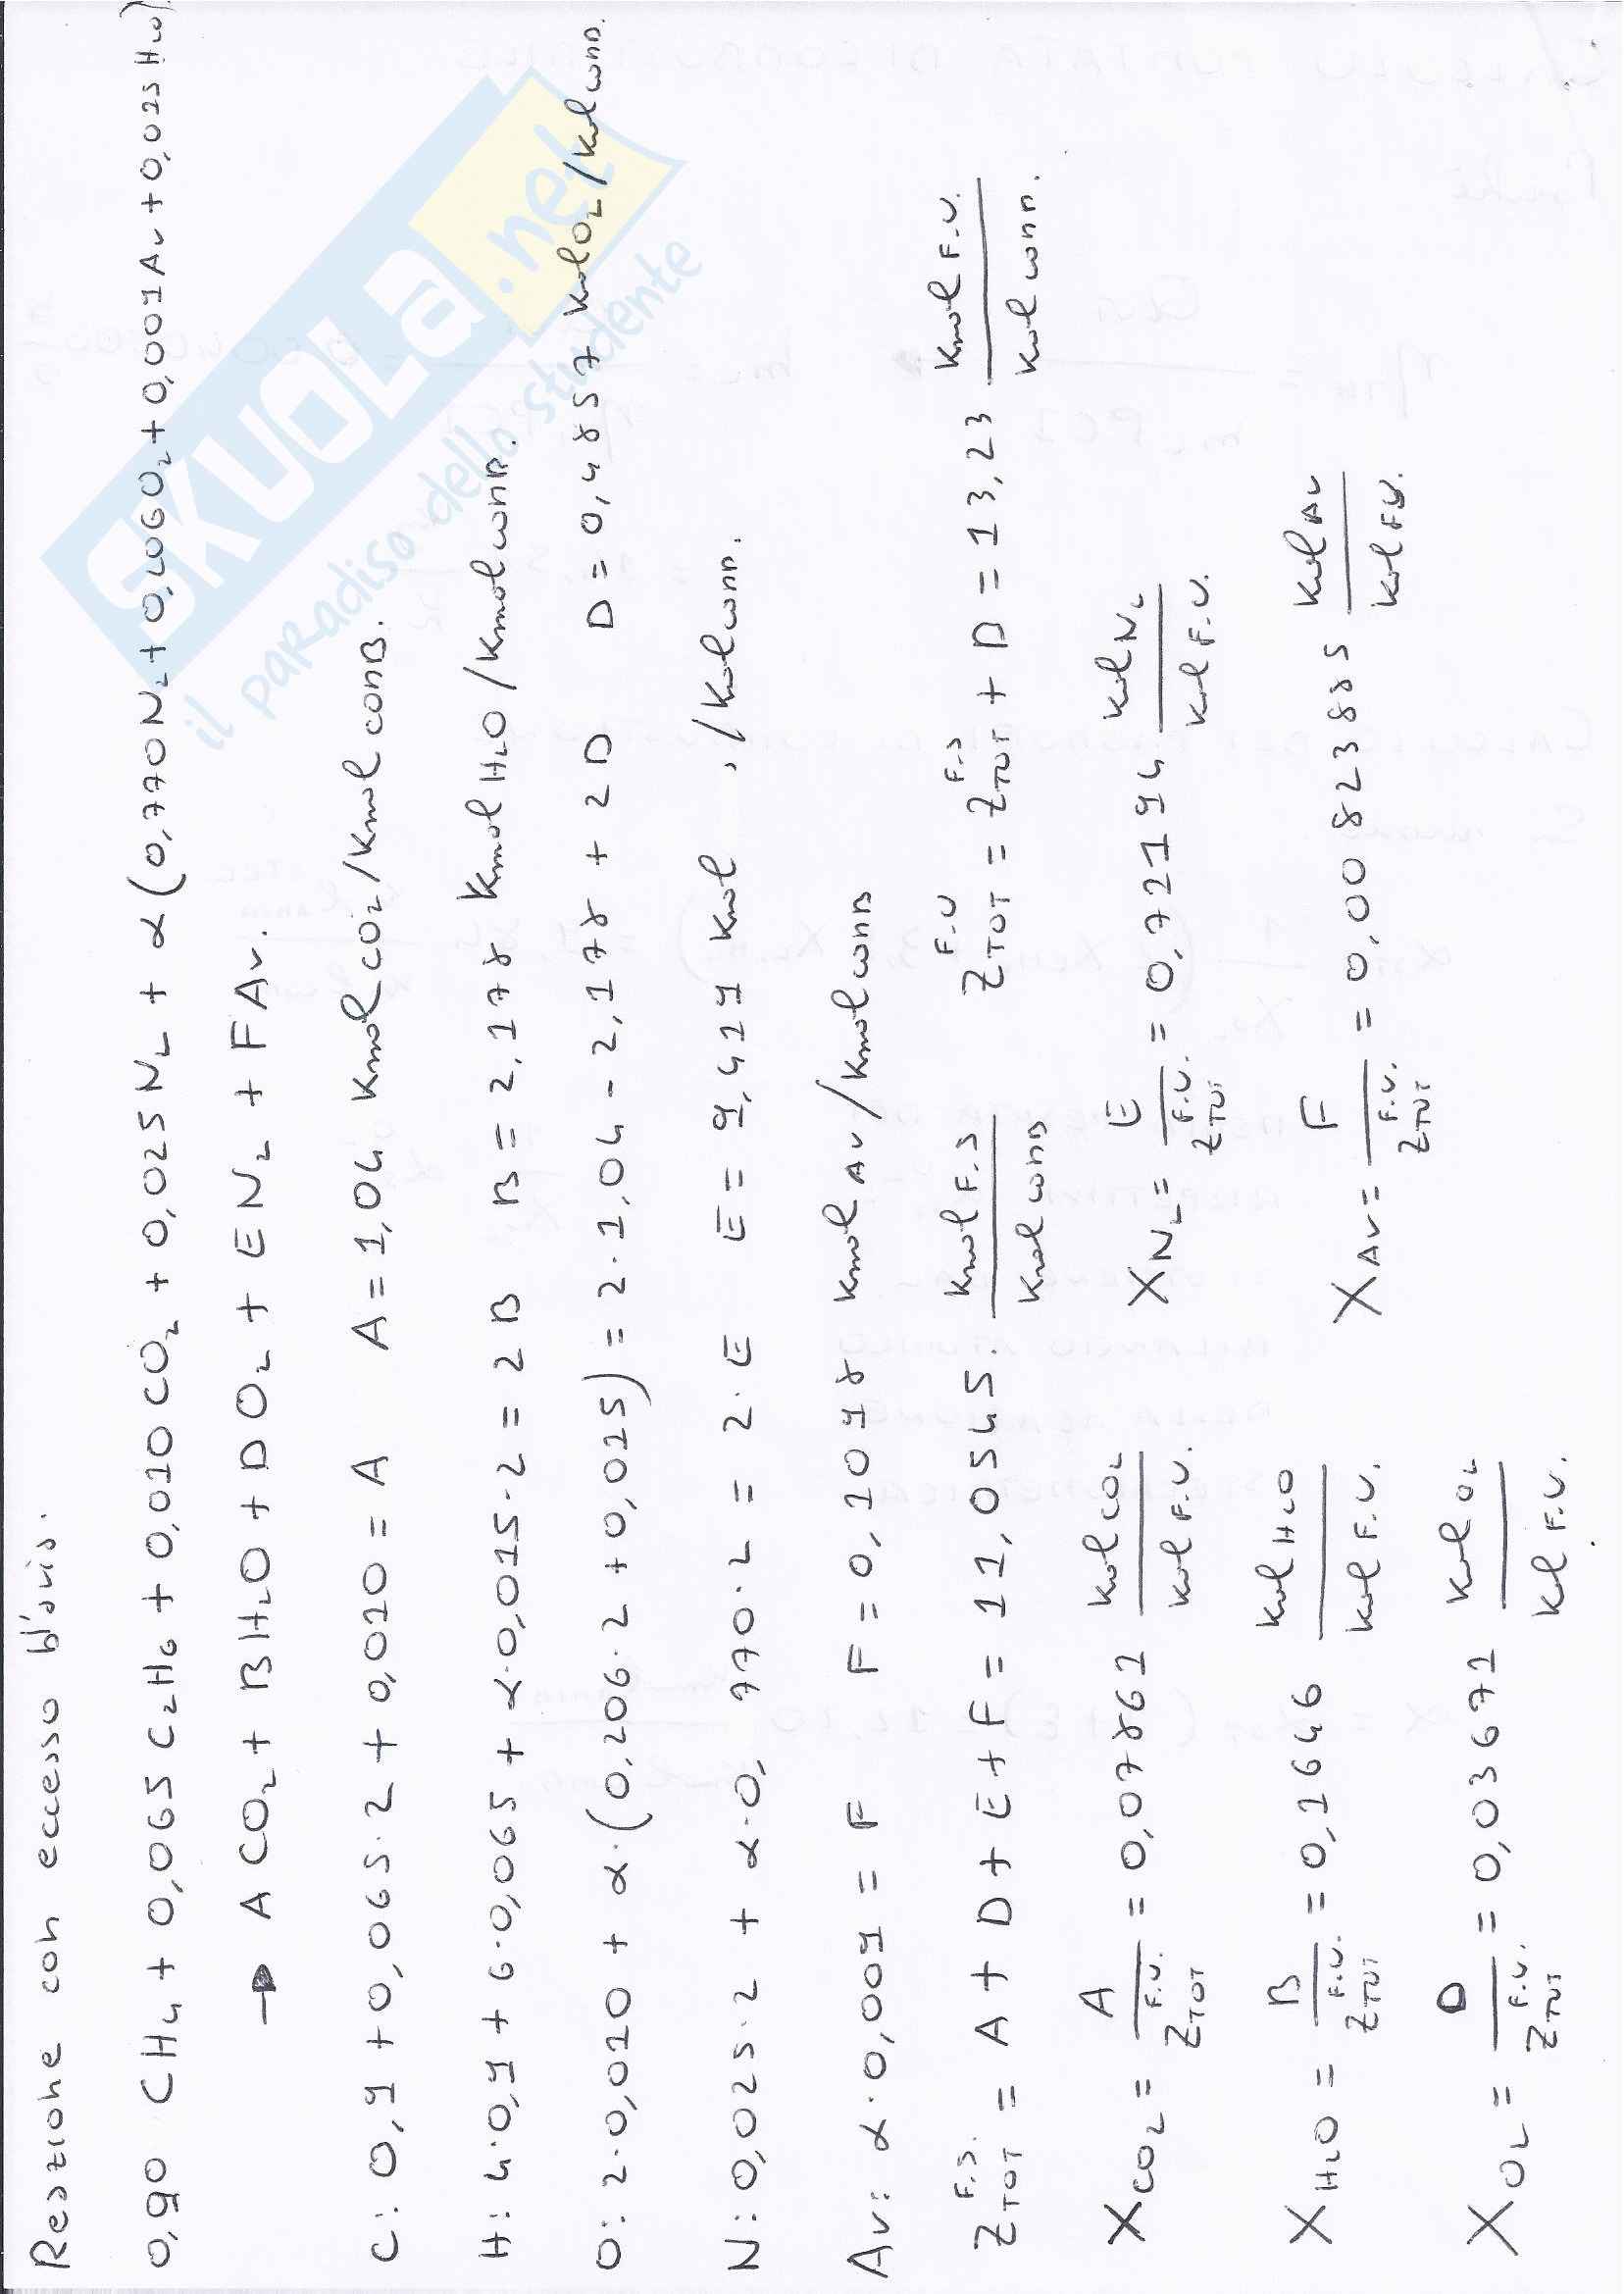 Reazione con eccesso d'aria.
0,90 CH4 + 0,065 C2H6 + 0,010 CO2 + 0,025 N2 + α(0,770 N2 + 0,206 O2 + 0,009 Ar + 0,025 H2O)
→ A CO2 + B H2O + D O2 + E N2 + F Ar.
C: 0,9 + 0,065·2 + 0,010 = A A = 1,04 Kmol CO2/Kmol comb.
H: 4·0,9 + 6·0,065 + α·0,015·2 = 2 B B = 2,178 Kmol H2O/Kmol comb.
O: 2·0,010 + α·(0,206·2 + 0,015) = 2·1,04 - 2,178 + 2 D D = 0,4857 Kmol O2/Kmol comb.
N: 0,025·2 + α·0,770·2 = 2·E E = 9,419 Kmol /Kmol comb.
Ar: α·0,009 = F F = 0,1098 Kmol Ar/Kmol comb
Z TOT F.S. = A + D + E + F = 11,0545. Kmol F.S/Kmol comb Z TOT F.U = Z TOT F.S + D = 13,23 Kmol F.U./Kmol comb.
X CO2 = A/Z TOT F.U. = 0,07861 Kmol CO2/Kmol F.U. X N2 = E/Z TOT F.U. = 0,72194 Kmol N2/Kmol F.U.
X H2O = B/Z TOT F.U. = 0,1646 Kmol H2O/Kmol F.U. X Ar = F/Z TOT F.U. = 0,00823885 Kmol Ar/Kmol F.U.
X O2 = D/Z TOT F.U. = 0,03671 Kmol O2/Kmol F.U.
SKUOLA.net
il paradiso dello studente